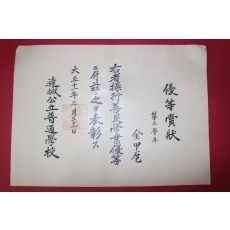 優等賞狀
第五學年
金甲龍
右者操行善良學業優等
ニ付茲ニ之ヲ表彰ス
大正十一年三月二十三日
達城公立普通學校